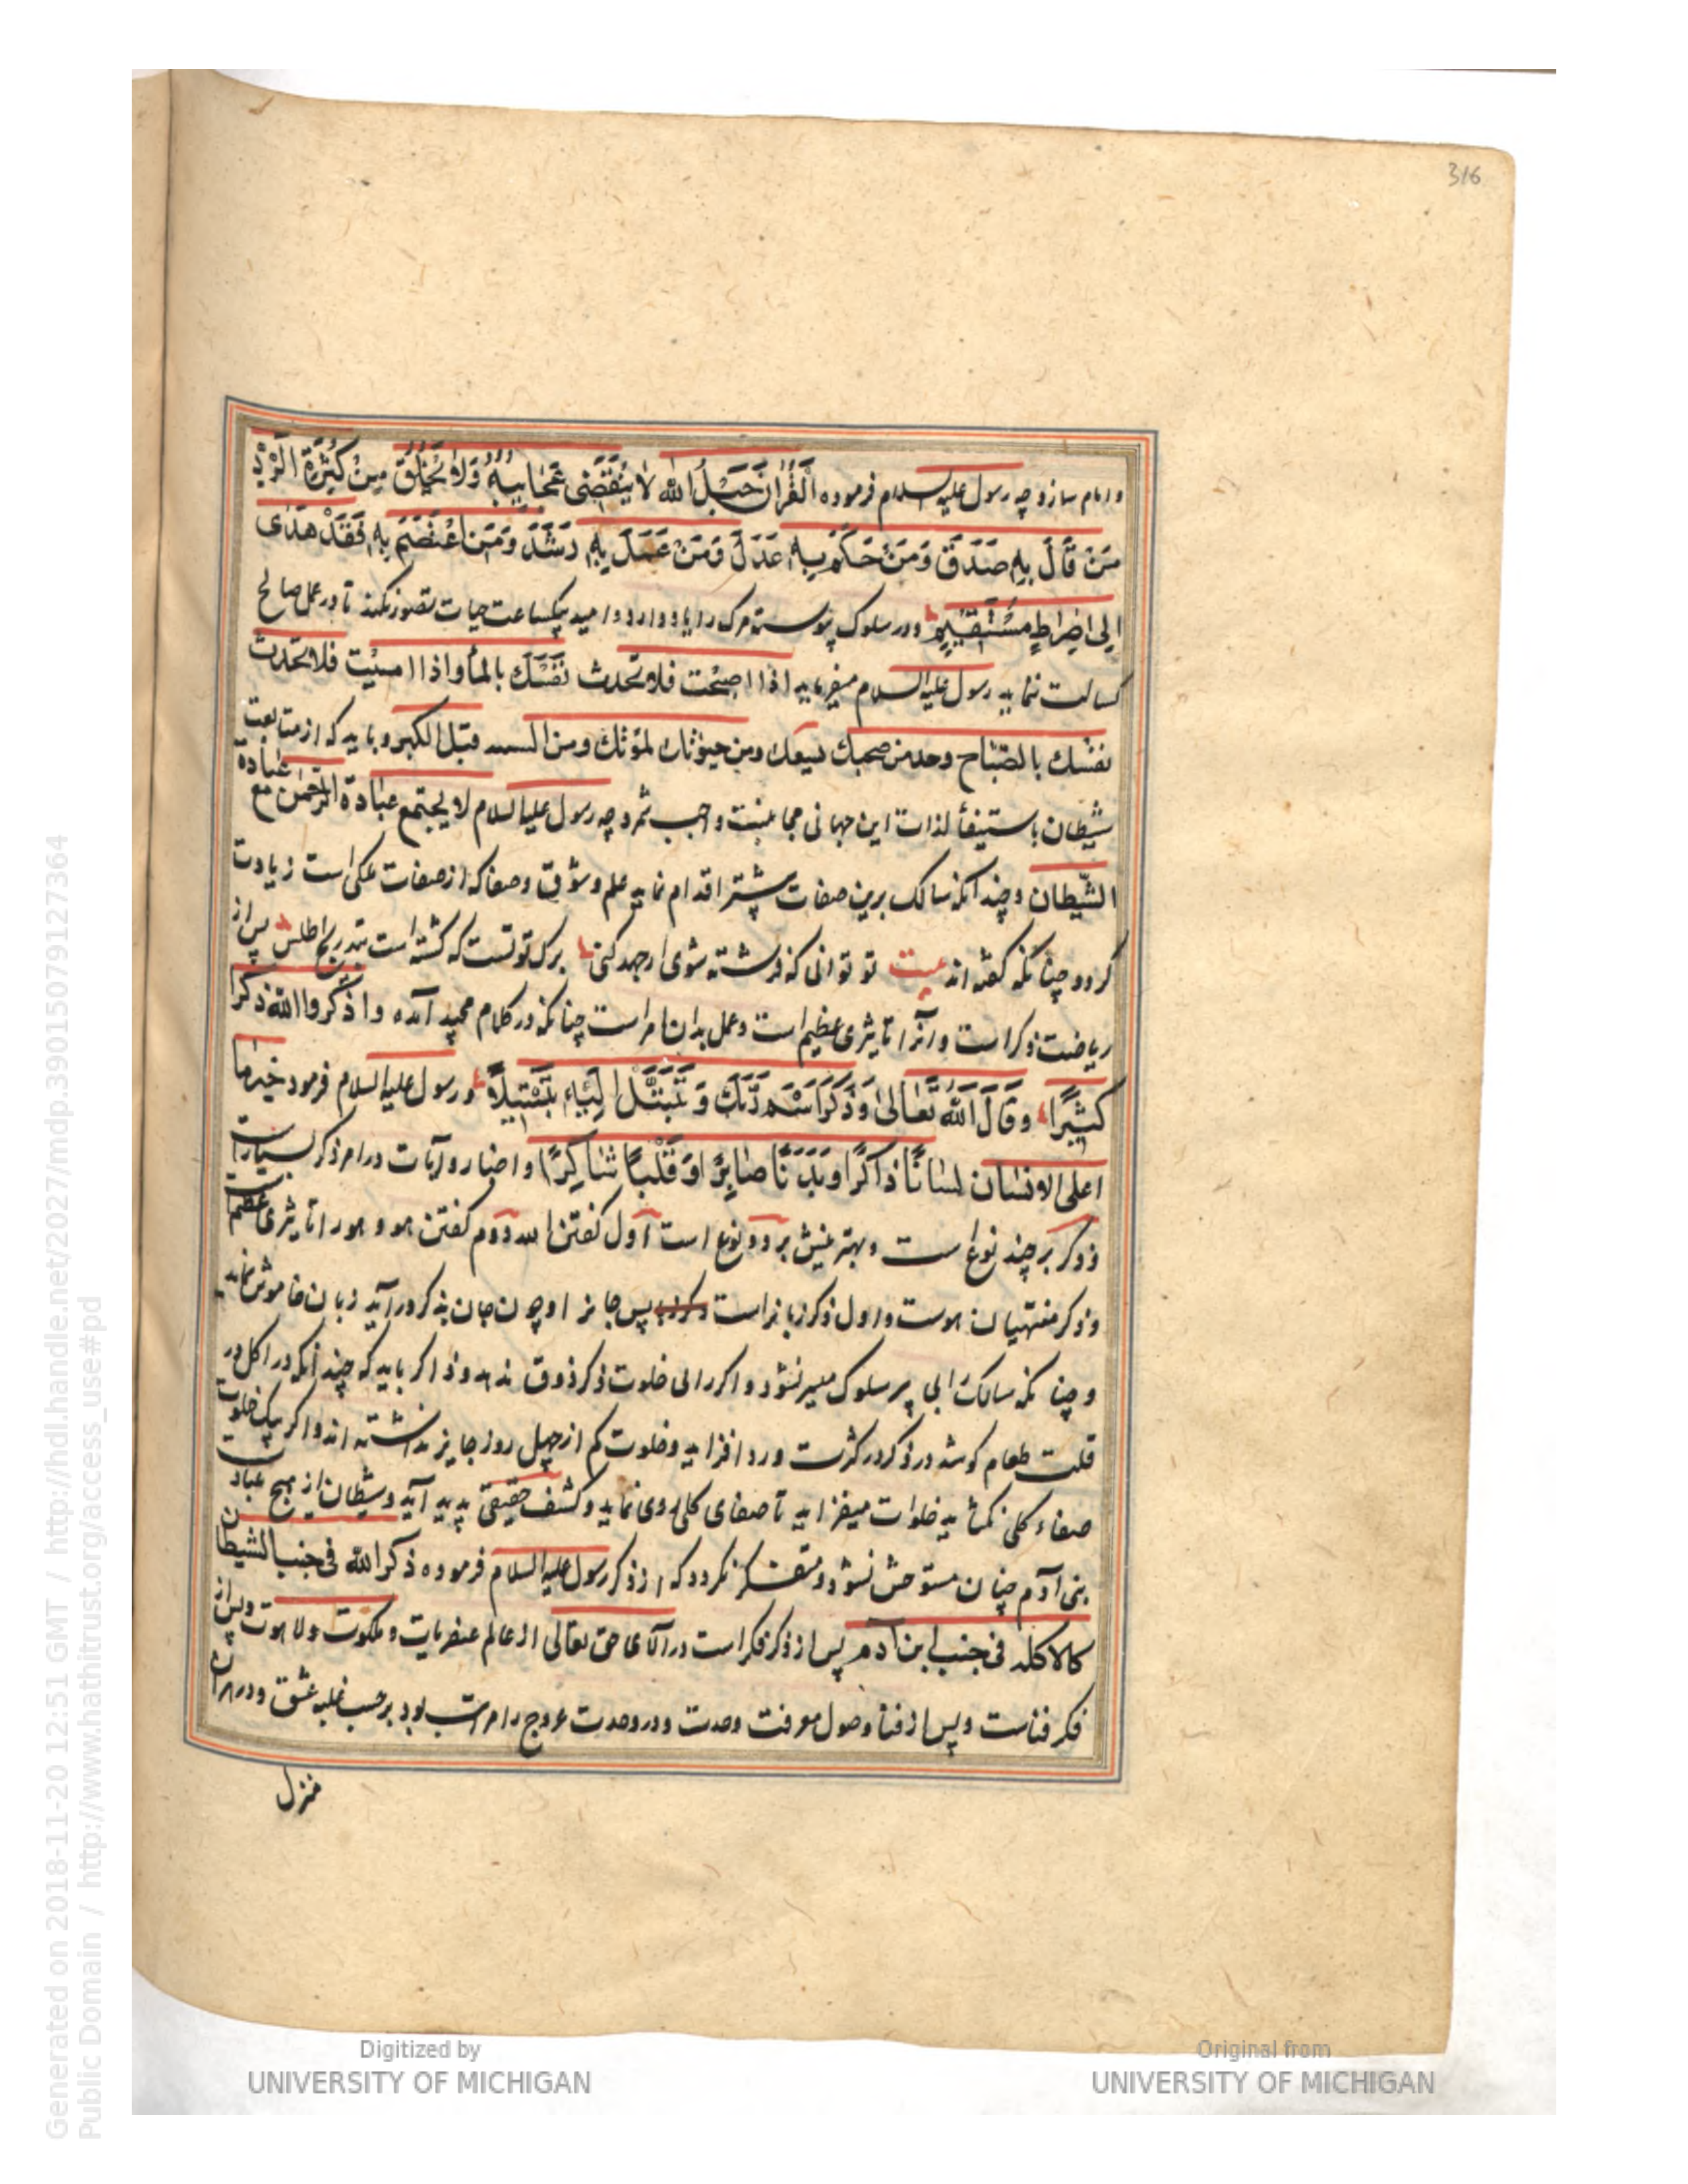 316
و امام سازد چه رسول علیه السلام فرموده اَلْقُرْانُ حَبْلُ الله لا یَنْقَضِی عَجَایِبُهُ وَلا یَخْلُقُ مِنْ کَثْرَةِ الرَّدِّ
مَنْ قَالَ بِهِ صَدَقَ وَمَنْ حَکَمَ بِهِ عَدَلَ وَمَنْ عَمِلَ بِهِ رَشَدَ وَمَنِ اعْتَصَمَ بِهِ فَقَدْ هَدَی
اِلی صِرَاطٍ مُسْتَقِیمٍ و در سلوک پیوسته مرک را یاد دارد و امید یکساعت حیات تصور نکند تا در عمل صالح
کسالت ننماید رسول علیه السلام میفرماید اذا اصبحت فلا تحدث نَفْسَكَ بالمسأ و اذا امسیت فلا تحدث
نفسك بالصّباح وخذ من صحبك لسقمك ومن حیوتك لموتك ومن قبل الکبر و باید که از متابعت
شیطان باستیفأ لذات این جهانی مجانبت واجب شمرد چه رسول علیه السلام لا یجتمع عبادة الرحمن مع عبادة
الشّیطان و چندانکه سالک برین صفات پیشتر اقدام نماید علم و شوق و صفا که از صفات ملکی است زیادت
کردد چنانکه کفته اند بیت تو توانی که فرشته شوی ار جهد کنی برک توتست که کشته است بتدریج اطلس پس از
ریاضت ذکر است و آنرا تاثیری عظیم است و عمل بدان امر است چنانکه در کلام مجید آمده و اذکروا الله ذکرا
کَثِیرًا و قَالَ اللَّهُ تَعَالیٰ وَاذْکُرِ اسْمَ رَبِّكَ وَ تَبَتَّلْ اِلَیْهِ تَبْتِیلاً و رسول علیه السلام فرمود خیر ما
اعطی الانسان لسانًا ذاکرًا و بَدَنًا صابِرًا وَ قَلْبًا شاکِرًا و اخبار و آیات در امر ذکر بسیارست
و ذکر بر چند نوع است و بهترینش بر دو نوع است اول کفتن الله دوم کفتن هو و هو را تاثیری عظیم است
و ذکر منتهیان هوست و اول ذکر زبانراست پس جانرا و چون جان بذکر درآید زبان خاموش نماید
و چنانکه سالک را بی پیر سلوک میسر نشود ذاکر را بی خلوت ذکر ذوق ندهد و ذاکر باید که چندانکه در اکل در
قلت طعام کوشد در ذکر در کثرت ورد افزاید و خلوت کم از چهل روز جایز نداشته اند و اگر یک خلوت
صفاء کلی نکشاید خلوات میفزاید تا صفای کلی روی نماید و کشف حقیقی پدید آید و شیطان از هیچ عبادت
بنی آدم چنان مستوحش نشود و منکسر نکردد که از ذکر رسول علیه السلام فرموده ذکر الله فی جنب الشیطان
کالاکله فی جنب ابن آدم پس از ذکر فکر است در آلای حق تعالی از عالم عنصریات و ملکوت و لاهوت و پس از
فکر فناست و پس از فنا وصول معرفت وحدت و در وحدت عروج را مراتب بود بر حسب غلبه عشق و در هر آن
منزل
Digitized by
UNIVERSITY OF MICHIGAN
Original from
UNIVERSITY OF MICHIGAN
Generated on 2018-11-20 12:51 GMT / http://hdl.handle.net/2027/mdp.39015079127364
Public Domain / http://www.hathitrust.org/access_use#pd